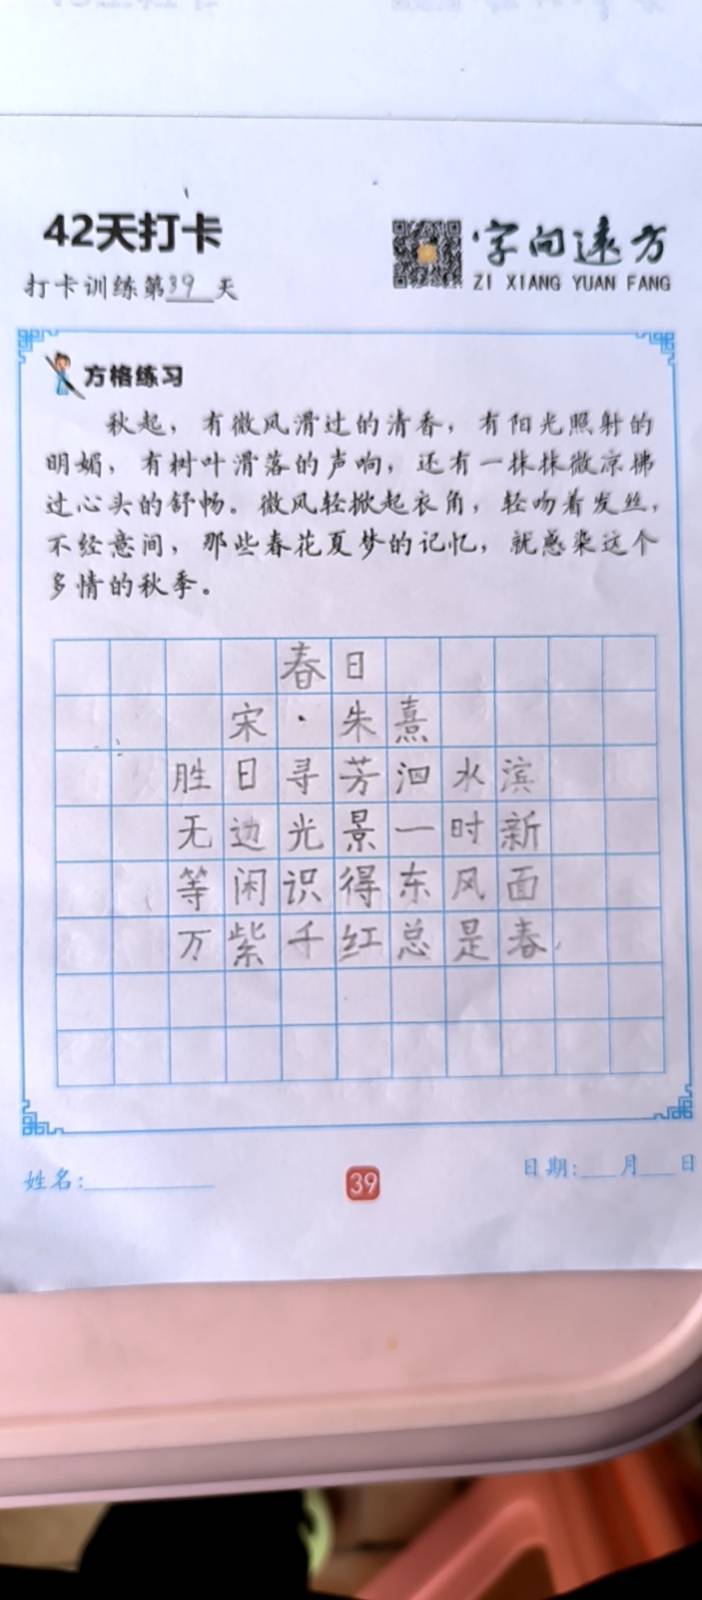 42天打卡
字向远方
打卡训练第39天
ZI XIANG YUAN FANG
方格练习
秋起，有微风滑过的清香，有阳光照射的
明媚，有树叶滑落的声响，还有一抹抹微凉拂
过心头的舒畅。微风轻掀起衣角，轻吻着发丝，
不经意间，那些春花夏梦的记忆，就感染这个
多情的秋季。
春日
宋·朱熹
胜日寻芳泗水滨
无边光景一时新
等闲识得东风面
万紫千红总是春
姓名：
39
日期：__月__日